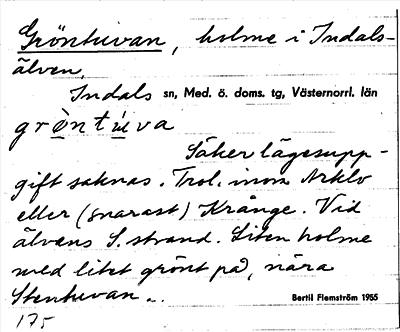 Gröntuvan, holme i Indals-
älven.
Indals sn, Med. ö. doms. tg, Västernorrl. län
gròntúva
Säker lägesupp-
gift saknas. Trol. inom Arklo
eller (snarast) Krånge. Vid
älvens S. strand. Liten holme
med litet grönt på, nära
Stentuvan.
Bertil Flemström 1955
175